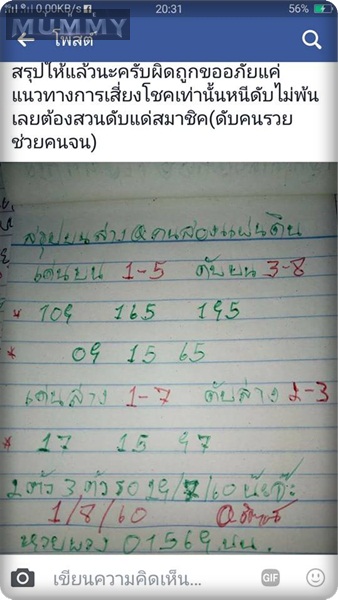 MUMMY
0.00KB/s 20:31 56%
โพสต์
สรุปให้แล้วนะครับผิดถูกขออภัยแค่
แนวทางการเสี่ยงโชคเท่านั้นหนีดับไม่พ้น
เลยต้องสวนดับแด่สมาชิค(ดับคนรวย
ช่วยคนจน)
สรุปบนล่าง คนสองแผ่นดิน
เด่นบน 1-5 ดับบน 3-8
* 109 165 195
* 09 15 65
เด่นล่าง 1-7 ดับล่าง 2-3
* 17 15 97
2 ตัว 3 ตัว
1/8/60
01569
เขียนความคิดเห็น... GIF